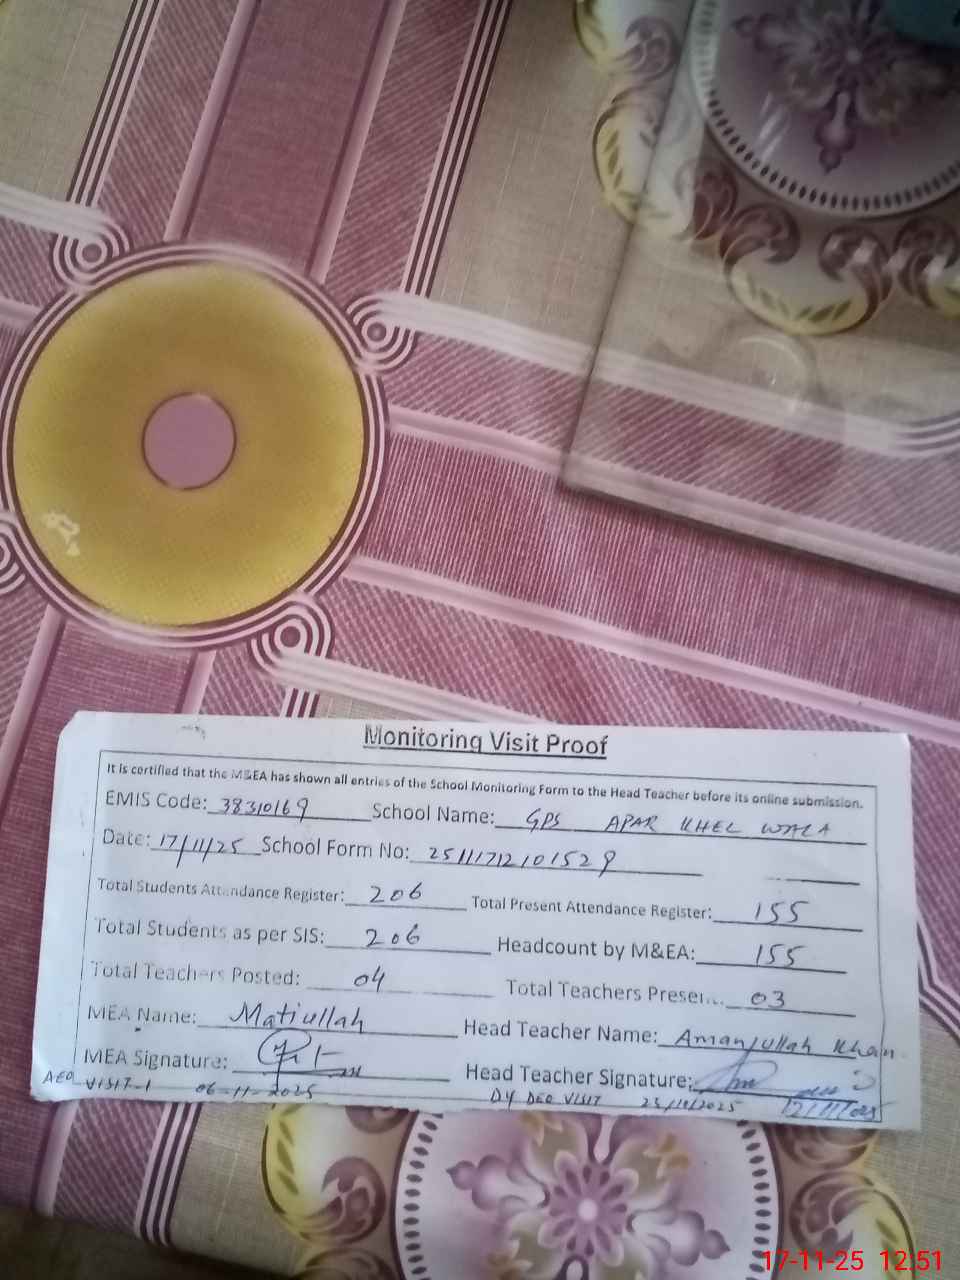 Monitoring Visit Proof
It is certified that the M&EA has shown all entries of the School Monitoring Form to the Head Teacher before its online submission.
EMIS Code: 38310169 School Name: GPS APAR KHEL WALA
Date: 17/11/25 School Form No: 25111712101529
Total Students Attendance Register: 206 Total Present Attendance Register: 155
Total Students as per SIS: 206 Headcount by M&EA: 155
Total Teachers Posted: 04 Total Teachers Present: 03
MEA Name: Matiullah Head Teacher Name: Amanullah Khan
MEA Signature: Head Teacher Signature:
AEO VISIT-1 06-11-2025 DY DEO VISIT 23/10/2025
17-11-25 12:51